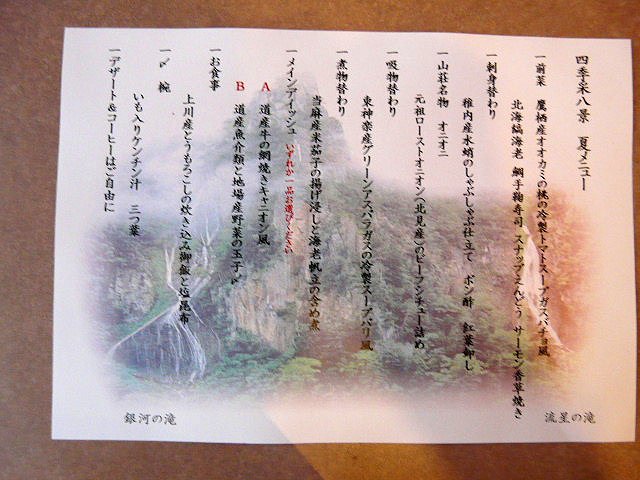 四季采八景 夏メニュー
一 前菜 鷹栖産オオカミの桃の冷製トマトスープガスパチョ風
北海縞海老 鯛手鞠寿司 スナップえんどう サーモン香草焼き
一 刺身替わり
稚内産水蛸のしゃぶしゃぶ仕立て ポン酢 紅葉卸し
一 山荘名物 オニオニ
元祖ローストオニオン(北見産)のビーフシチュー詰め
一 吸物替わり
東神楽産グリーンアスパラガスの冷製スープ パリ風
一 煮物替わり
当麻産米茄子の揚げ浸しと海老帆立の含め煮
一 メインディッシュ いずれか一品お選びください
A 道産牛の網焼きキャニオン風
B 道産魚介類と地場産野菜の玉子〆
一 お食事
上川産とうもろこしの炊き込み御飯と塩昆布
一 〆椀
いも入りケンチン汁 三つ葉
一 デザート&コーヒーはご自由に
流星の滝
銀河の滝